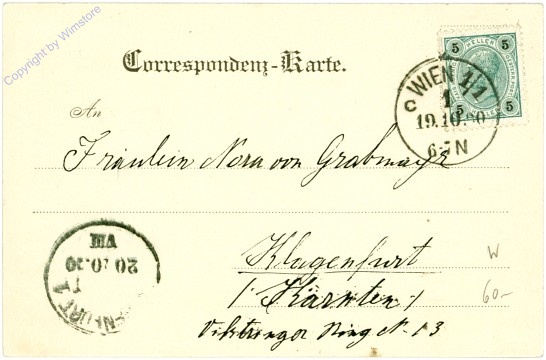 Copyright by Wimstore
Correspondenz-Karte.
5 HELLER 5
WIEN 1/1
1
19.10.00
6-7N
5 5
An
Fräulein Nora von Grabmayr
Klagenfurt
/ Kärnten /
Viktringer Ring N. 13
VIII
20.10.00
KLAGENFURT
W
60-